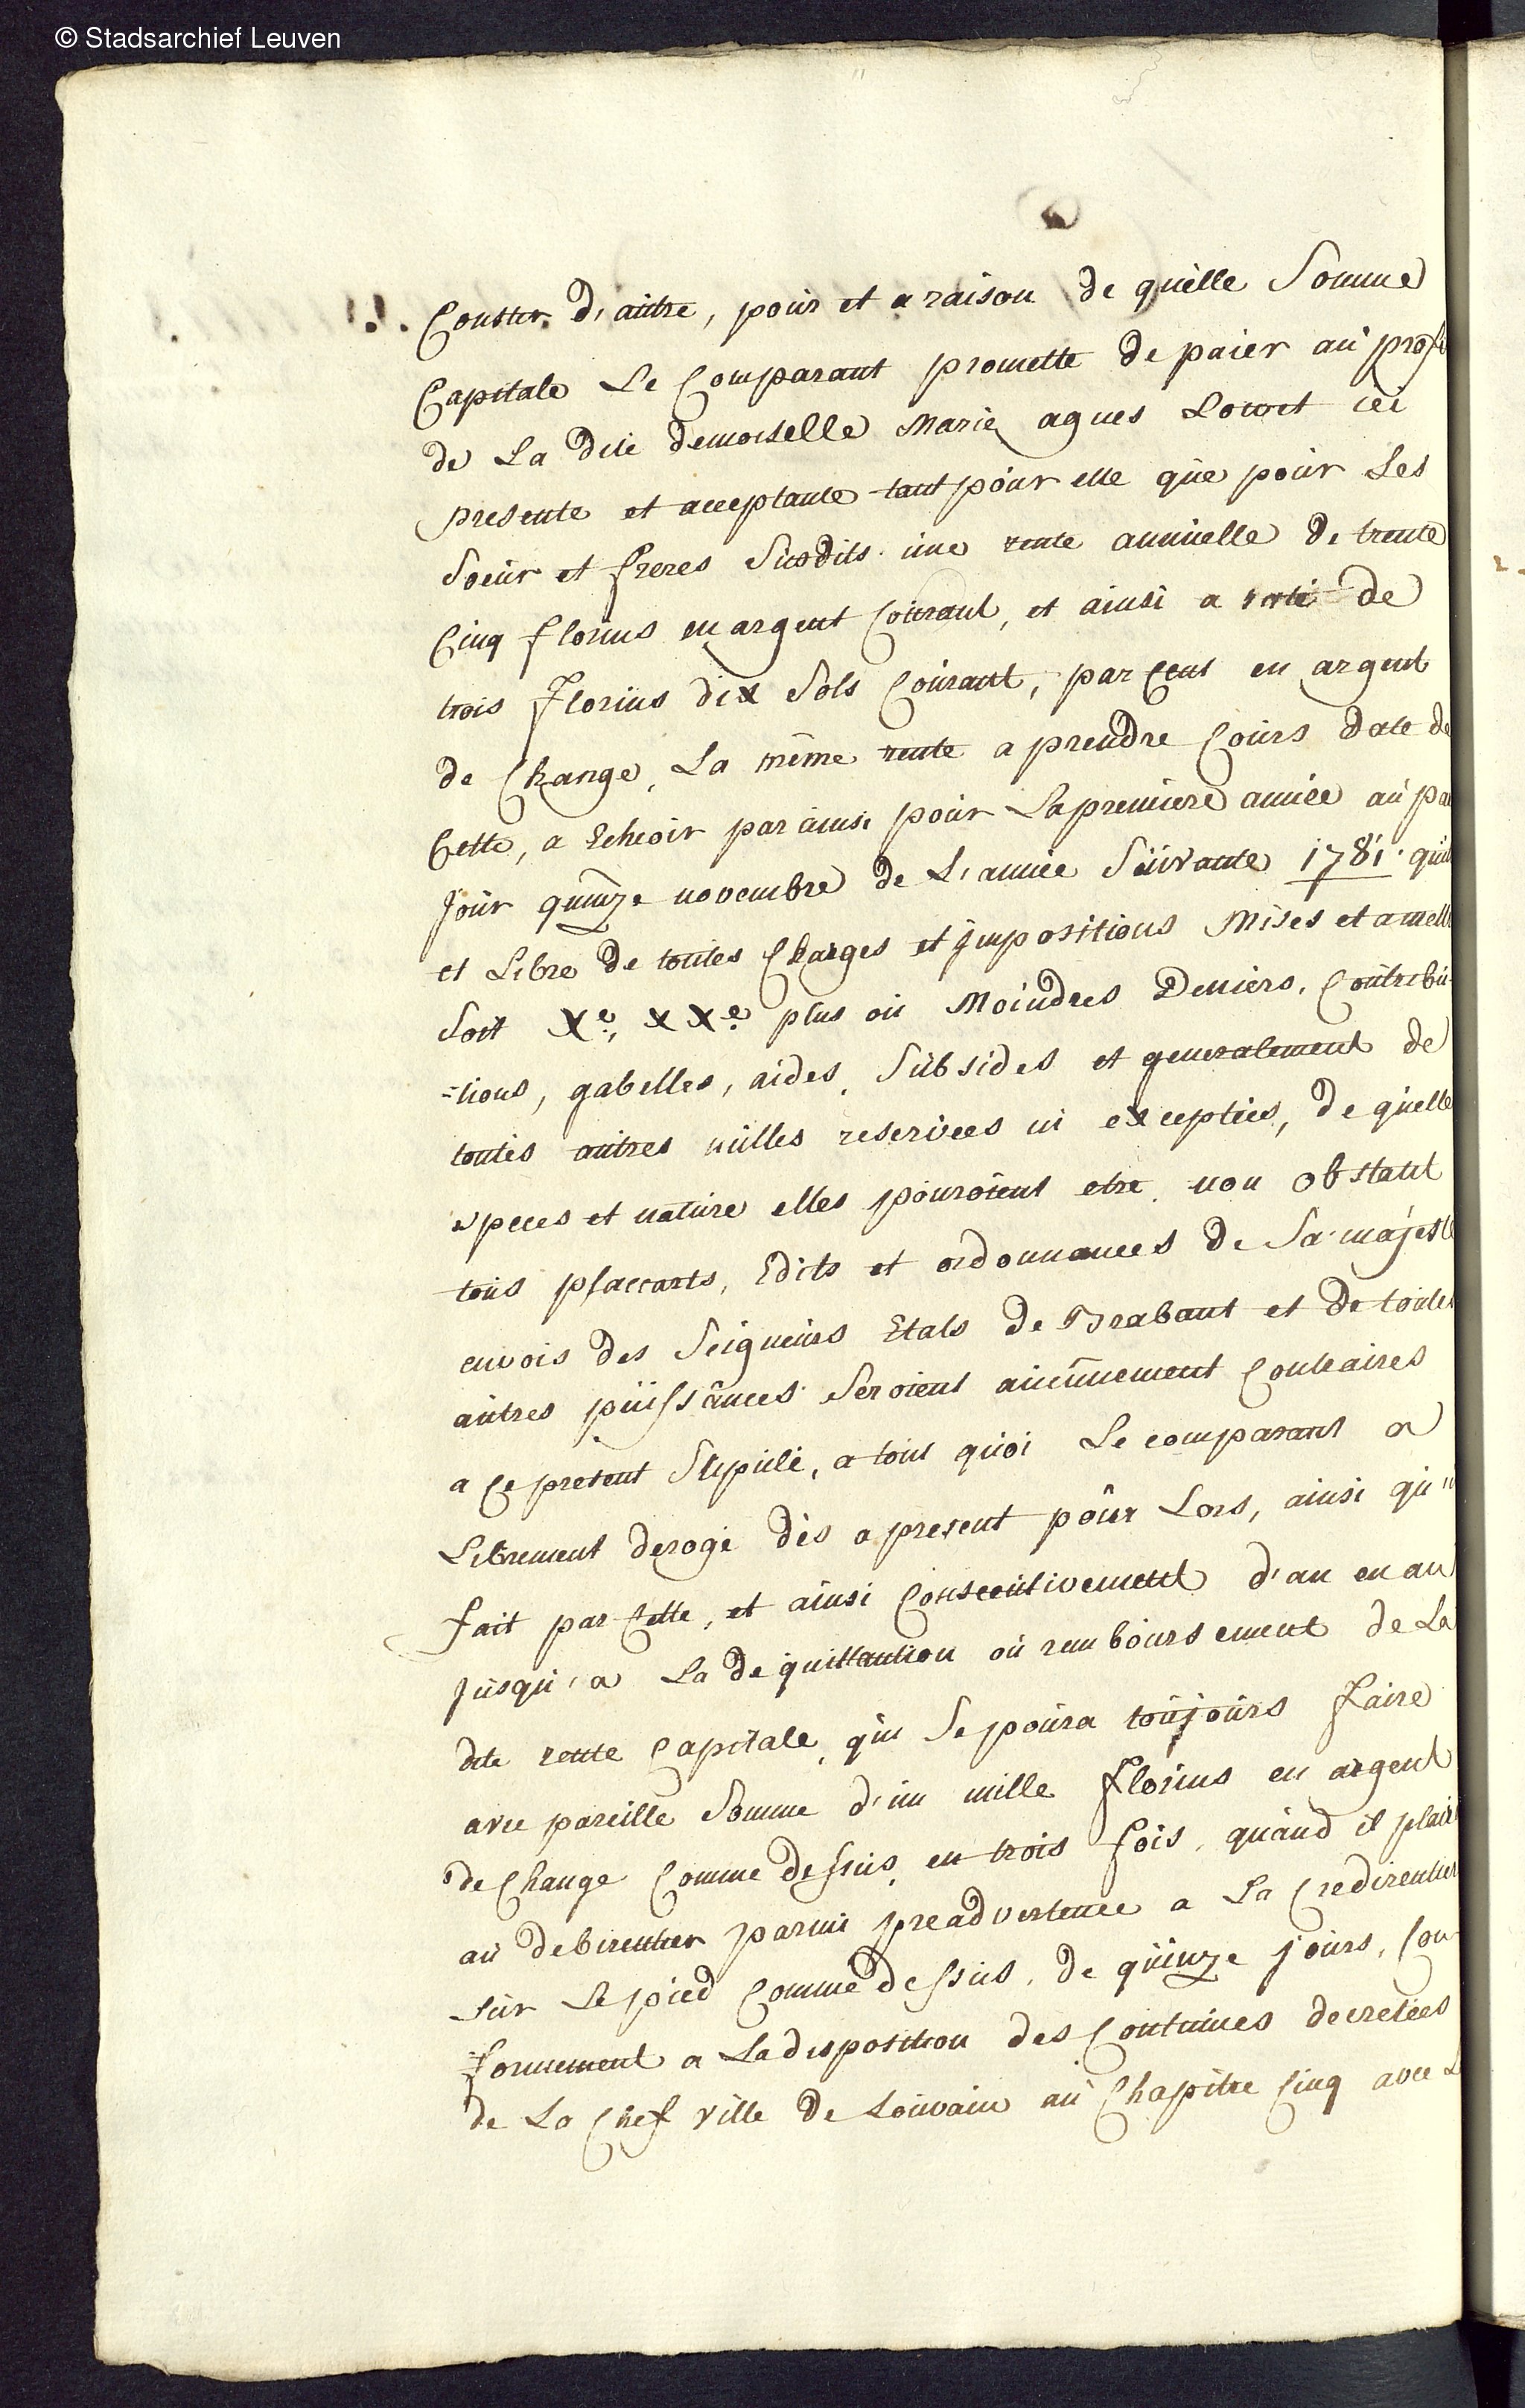 © Stadsarchief Leuven
Conster d'autre, pour et a raison de quelle Somme
Capitale Le Comparant promette de paier au profi
de La dite demoiselle Marie agnes Lowet ici
presente et acceptante tant pour elle que pour Les
Soeur et freres Susdits une rente annuelle de trente
Cinq florins en argent Courant, et ainsi a de
trois florins dix Sols Courant, par Cent en argent
de Change, La même rente a prendre Cours date de
Cette, a Echeoir par ainsi pour La premiere année au pa
Jour quinze novembre de L'année Suivante 1781. quit
et Libre de toutes Charges et jmpositions Mises et amett
Soit Xe, XXe plus ou Moindres Deniers, Contribu-
=tions, gabelles, aides, Subsides et generalement de
toutes autres nulles reservées ni exceptées, de quelle
speces et nature elles pouroient etre, non obstant
tous placcarts, Edits et ordonnances de Sa majesté
envois des Seigneurs Etats de Brabant et de toutes
autres puissances Seroient aucunement Contraires
a Ce present Stipulé, a tout quoi Le comparant a
Librement derogé dès a present pour Lors, ainsi qu'il
fait par Cette, et ainsi Consecutivement d'an en an
Jusqu'a La dequittantion ou remboursement de La
dite rente Capitale, qui Se poura toujours faire
avec pareille Somme d'un mille florins en argent
de Change Comme dessus, en trois fois, quand il plair
au debirentier parmi preadvertence a La Credirentier
Sur Le pied Comme dessus, de quinze jours, Con-
formement a La disposition des Coutumes decretées
de La Chef ville de Louvain au Chapitre Cinq avec L